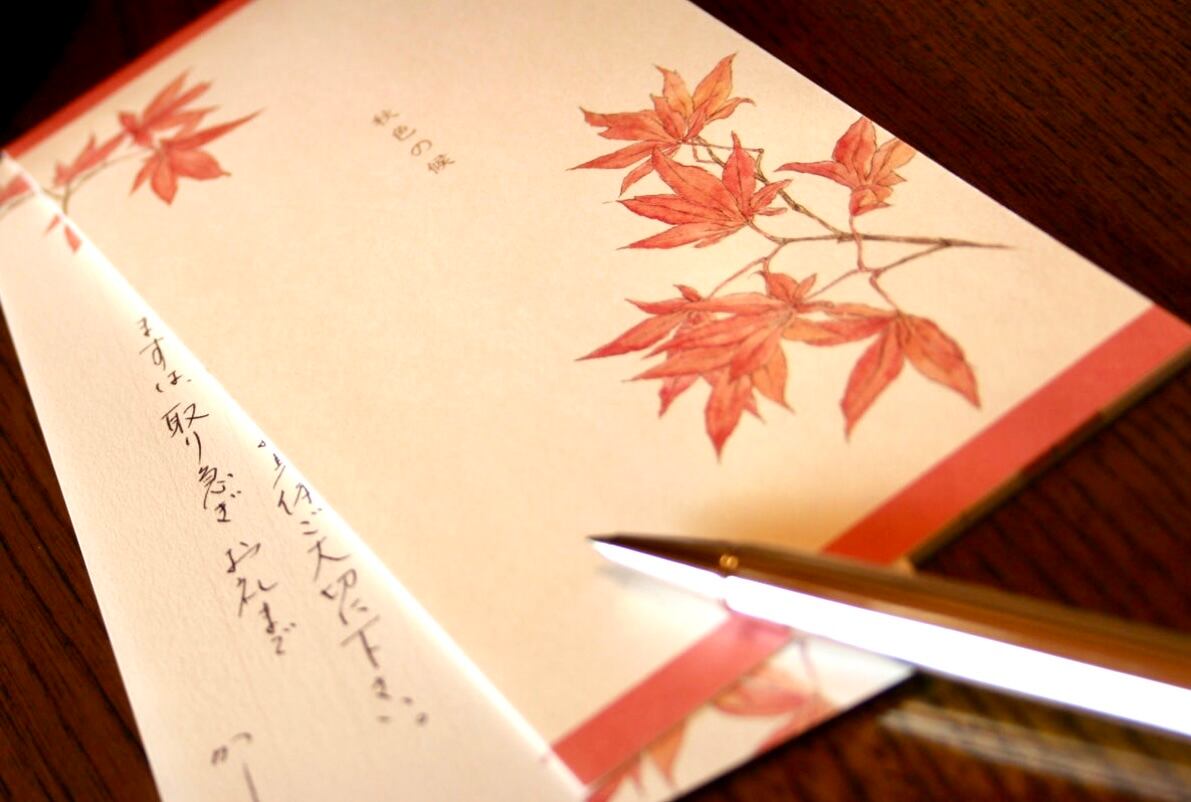 秋色の候
お身体ご大切に下さい。
まずは、取り急ぎお礼まで